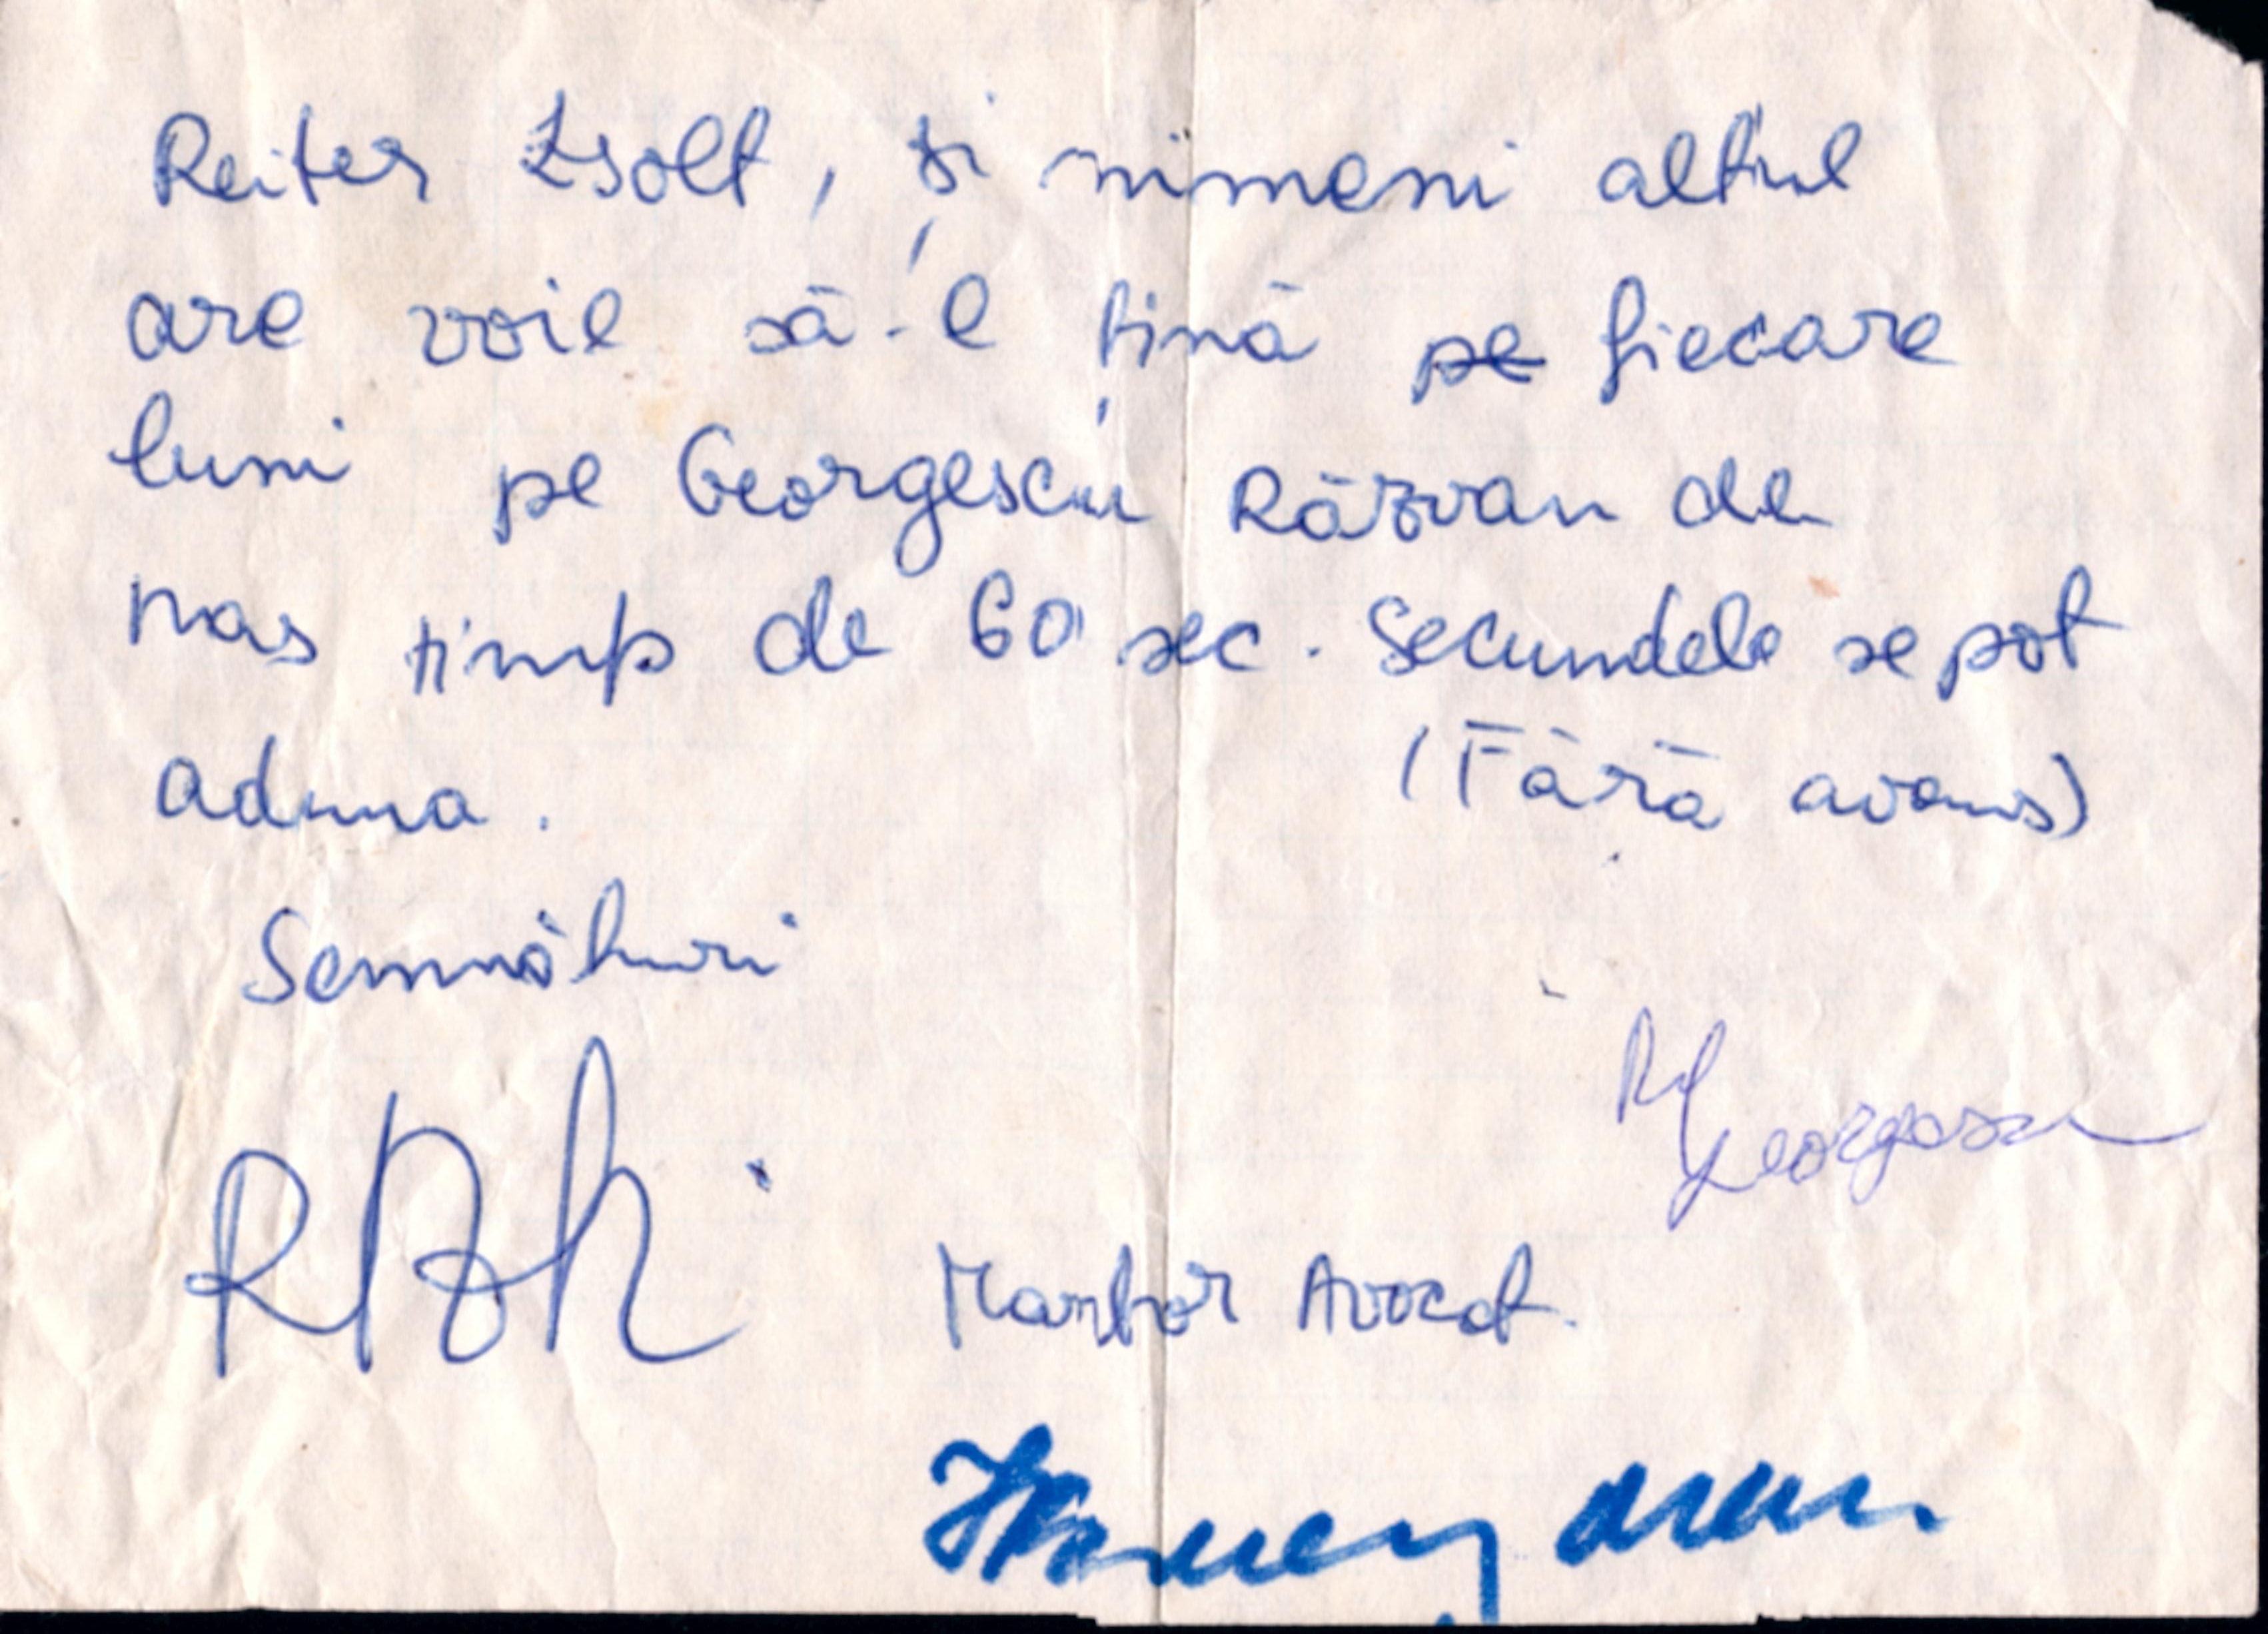 Reiter Zsolt, și nimeni altul
are voie să-l țină pe fiecare
luni pe Georgescu Răzvan de
nas timp de 60 sec. Secundele se pot
aduna. (Fără avans)
Semnături
R Georgescu
Martor Avocat.